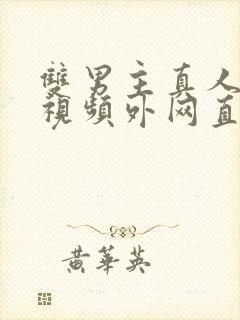 雙男主真人
視頻外网直
黄華英